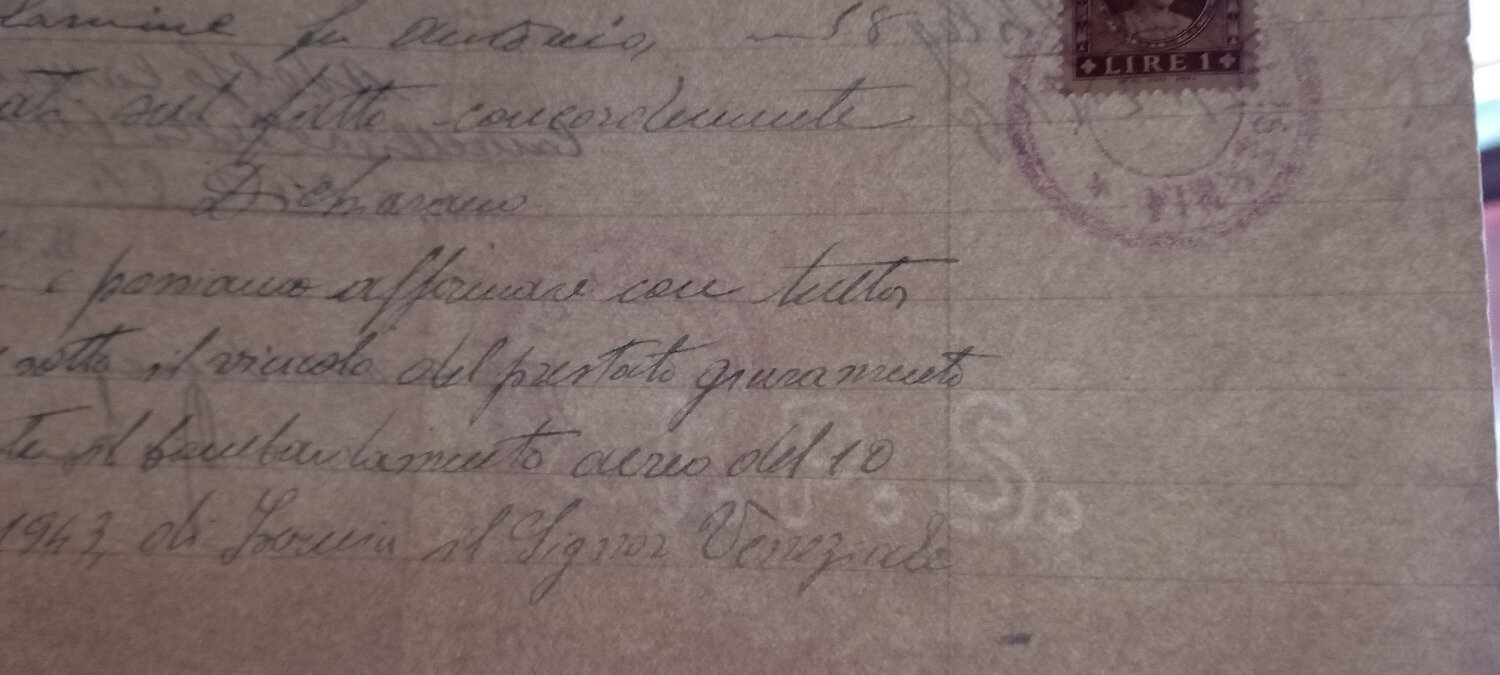 fu Antonio, 58
LIRE 1
sul fatto concordemente
Dichiarano
possiamo affermare con tutta
sotto il vincolo del prestato giuramento
il bombardamento aereo del 10
I.P.S.
1943, di Isernia il Signor Veneziale